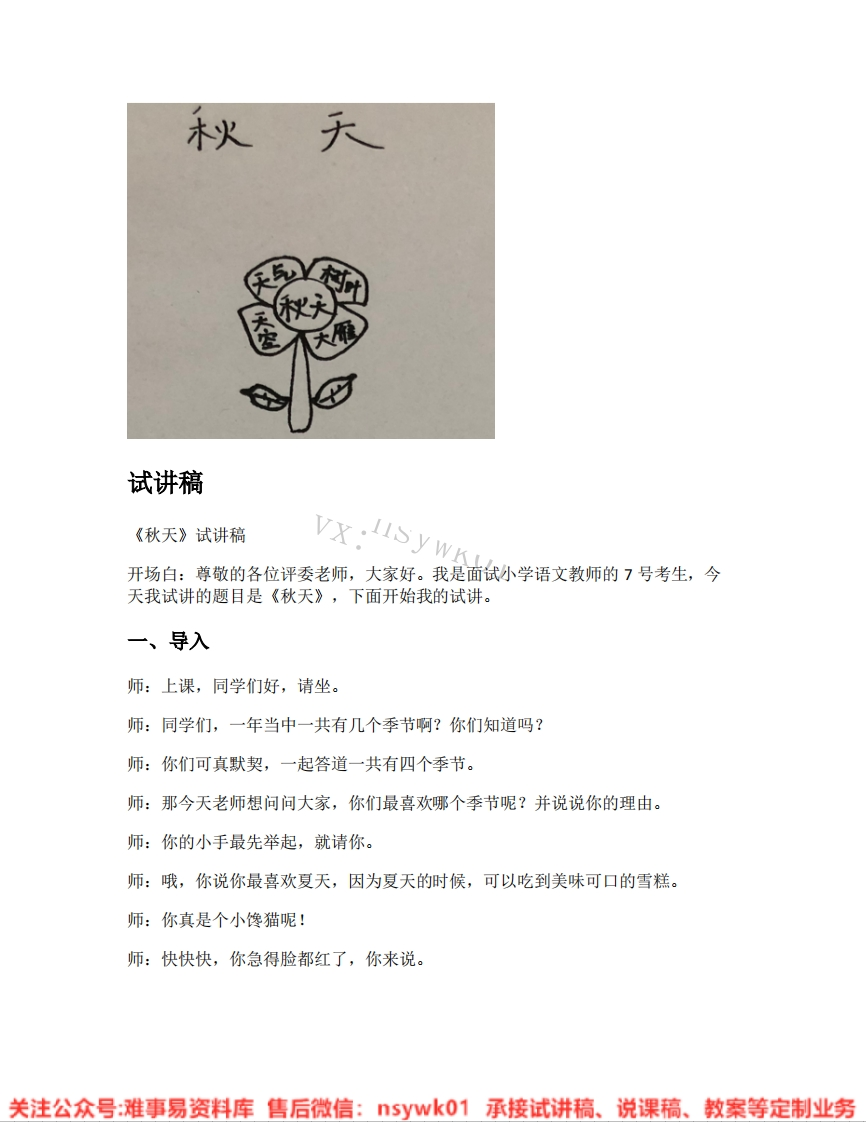 秋 天
天气 树叶
秋天
天空 大雁
试讲稿
《秋天》试讲稿
VX:nsywk01
开场白：尊敬的各位评委老师，大家好。我是面试小学语文教师的 7 号考生，今
天我试讲的题目是《秋天》，下面开始我的试讲。
一、导入
师：上课，同学们好，请坐。
师：同学们，一年当中一共有几个季节啊？你们知道吗？
师：你们可真默契，一起答道一共有四个季节。
师：那今天老师想问问大家，你们最喜欢哪个季节呢？并说说你的理由。
师：你的小手最先举起，就请你。
师：哦，你说你最喜欢夏天，因为夏天的时候，可以吃到美味可口的雪糕。
师：你真是个小馋猫呢！
师：快快快，你急得脸都红了，你来说。
关注公众号:难事易资料库 售后微信：nsywk01 承接试讲稿、说课稿、教案等定制业务